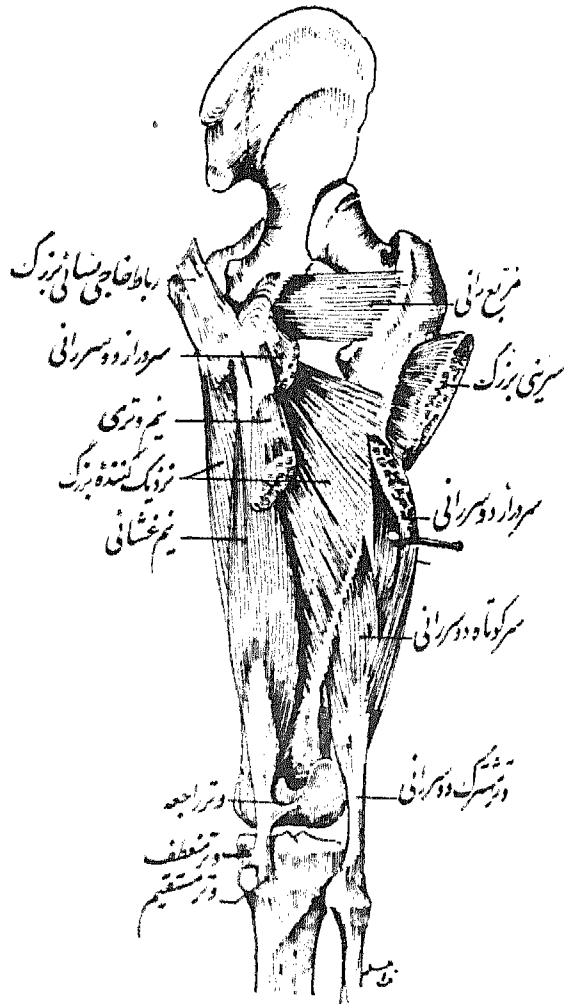 رباط خاجی نسائی بزرگ
سردراز دوسررانی
نیم وتری
نزدیک کنندهٔ بزرگ
نیم غشائی
وتر راجعه
وتر منعطف
وتر مستقیم
مربع رانی
سرینی بزرگ
سردراز دوسررانی
سرکوتاه دوسررانی
وتر مشترک دوسررانی